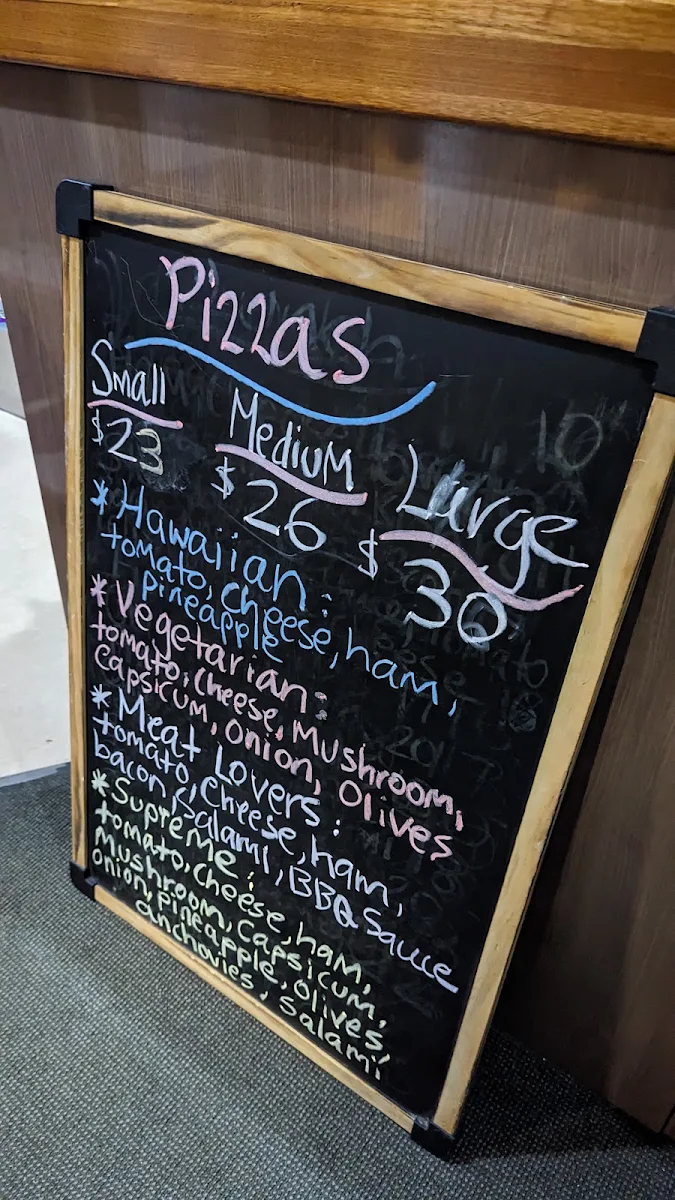 Pizzas
Small
$23
Medium
$26
Large
$30
* Hawaiian:
tomato, cheese, ham,
pineapple
* Vegetarian:
tomato, cheese, Mushroom,
Capsicum, onion, Olives
* Meat Lovers:
tomato, cheese, ham,
bacon, salami, BBQ Sauce
* Supreme:
tomato, cheese, ham,
Mushroom, Capsicum,
onion, pineapple, olives,
anchovies, salami
10